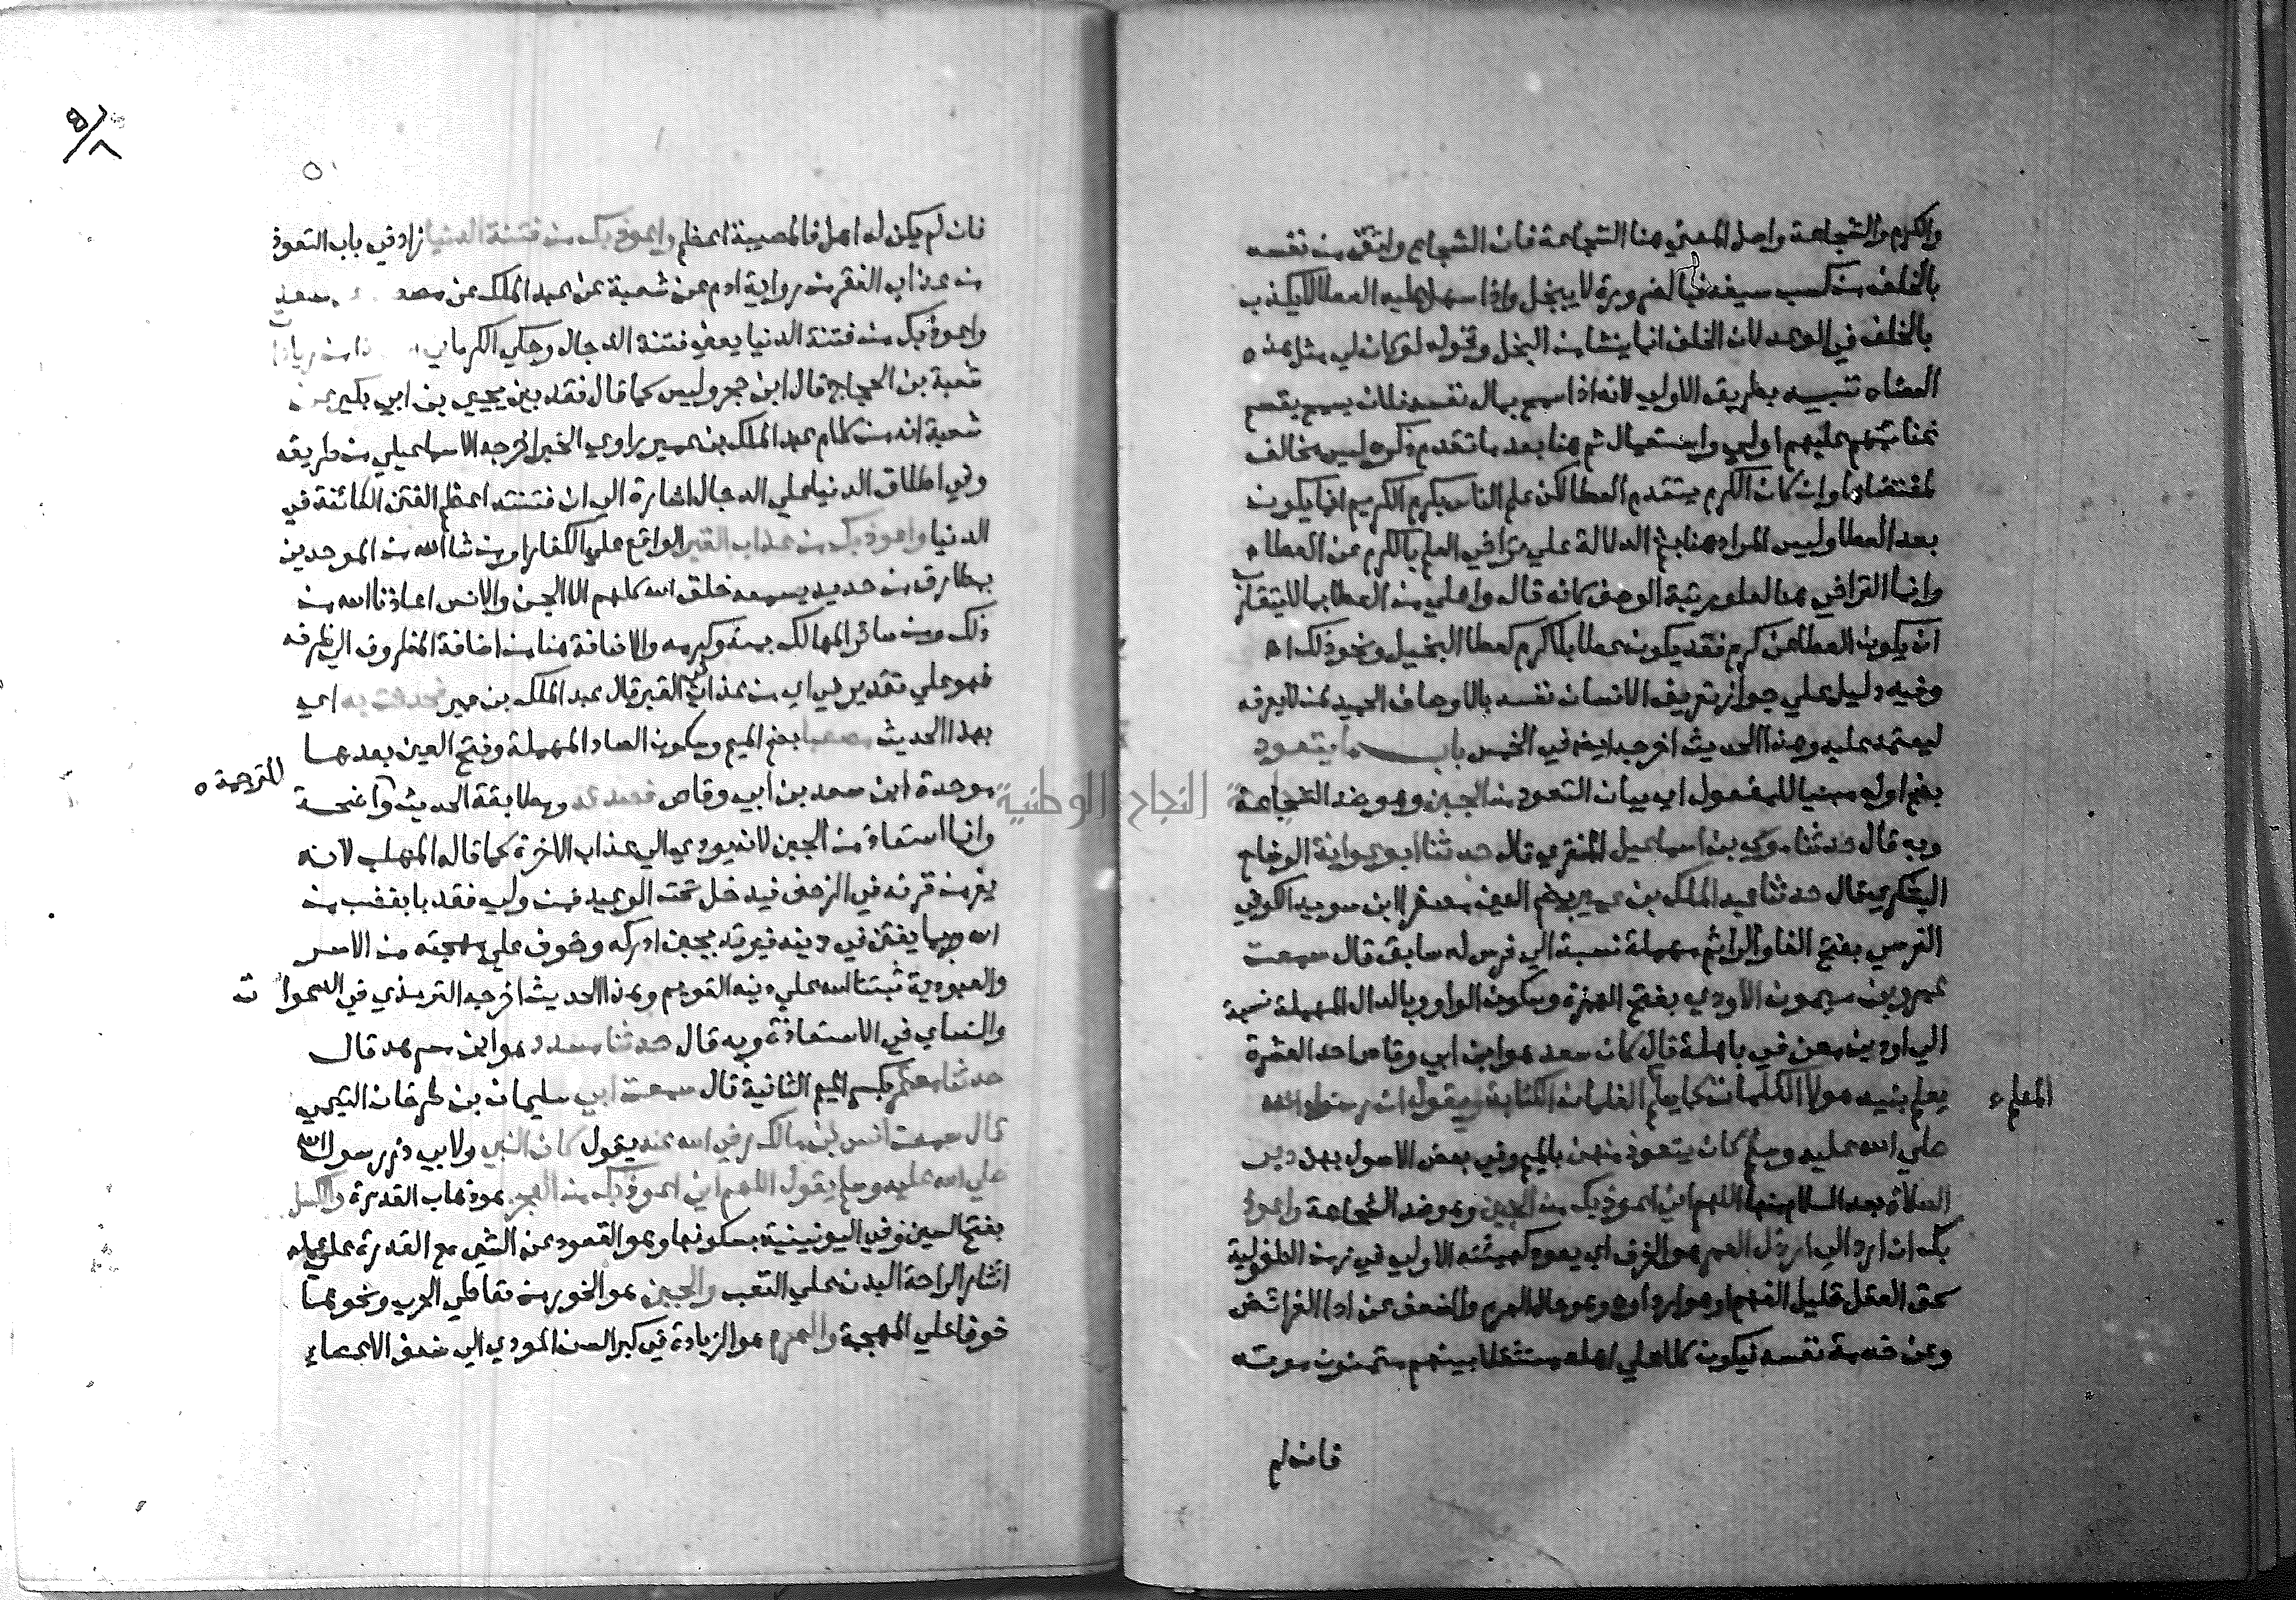 والكرم والشجاعة واصل المعني هنا الشجاعة فان الشجاع واثق من نفسه
بالخلف من كسب سيفه فبالضرورة لا يبخل واذا سهل عليه العطا لا يكذب
بالخلف في الوعد لان الخلف انما ينشا من البخل وقوله لو كان لي مثل هذه
العضاه تنبيه بطريق الاولي لانه اذا سمح بمال نفسه فلان يسمح بقسم
غنائمهم عليهم اولي واستعمال ثم هنا بعد ما تقدم ذكره ليس مخالف
لمقتضاها وان كان الكرم يتقدم العطا لكن علم الناس بكرم الكريم انما يكون
بعد العطا وليس المراد هنا بثم الدلالة علي تراخي العلم بالكرم عن العطا
وانما التراخي هنا لعلو رتبة الوصف كانه قال واعلي من العطا بما لا يتقارب
ان يكون العطا عن كرم فقد يكون عطا بلا كرم كعطا البخيل ونحو ذلك اه
وفيه دليل علي جواز تعريف الانسان نفسه بالاوصاف الحميدة لمن لا يعرفه
ليعتمد عليه وهذا الحديث اخرجه ايضا في الخمس باب ما يتعوذ
بضم اوله مبنيا للمفعول اي بيان التعوذ من الجبن وهو ضد الشجاعة
وبه قال حدثنا موسي بن اسماعيل المنقري قال حدثنا ابو عوانة الوضاح
اليشكري قال حدثنا عبد الملك بن عمير بضم العين مصغرا ابن سويد الكوفي
الفرسي بفتح الفا والرا ثم مهملة نسبة الي فرس له سابق قال سمعت
عمرو بن ميمون الاودي بفتح الهمزة وسكون الواو وبالدال المهملة نسبة
الي اود بن معن في باهلة قال كان سعد هو ابن ابي وقاص احد العشرة
يعلم بنيه هولا الكلمات كما يعلم الغلمان الكتابة ويقول ان رسول الله
المعلم
صلي الله عليه وسلم كان يتعوذ منهن بالميم وفي بعض الاصول بهن دبر
الصلاة بعد السلام منها اللهم اني اعوذ بك من الجبن وهو ضد الشجاعة واعوذ
بك ان ارد الي ارذل العمر هو الخرف اي يعود كهيئته الاولي في زمن الطفولية
سخيف العقل قليل الفهم او هو اردوه وهو حال الهرم والضعف عن ادا الفرائض
وعن خدمة نفسه فيكون كلا علي اهله مستثقلا بينهم يتمنون موته
فان لم
فان لم يكن له اهل فالمصيبة اعظم واعوذ بك من فتنة الدنيا زاد في باب التعوذ
من عذاب الفقر من رواية ادم عن شعبة عن عبد الملك عن سعد
واعوذ بك من فتنة الدنيا يعني فتنة الدجال وحكي الكرماني من زيادات
شعبة بن الحجاج قال ابن حجر وليس كما قال فقد بين يحيي بن ابي بكير عن
شعبة انه من كلام عبد الملك بن عمير راوي الخبر اخرجه الاسماعيلي من طريقه
وفي اطلاق الدنيا علي الدجال اشارة الي ان فتنته اعظم الفتن الكائنة في
الدنيا واعوذ بك من عذاب القبر الواقع علي الكفار او من شا الله من الموحدين
بمطارق من حديد يسمعه خلق الله كلهم الا الجن والانس اعاذنا الله من
ذلك ومن سائر المهالك بمنه وكرمه والاضافة هنا من اضافة المظروف الي ظرفه
فهو علي تقدير في اي من عذاب في القبر قال عبد الملك بن عمير فحدثت به اي
بهذا الحديث مصعبا بضم الميم وسكون الصاد المهملة وفتح العين بعدها
موحدة ابن سعد بن ابي وقاص فصدقه ومطابقة الحديث واضحة
للترجمة
وانما استعاذ من الجبن لانه يودي الي عذاب الاخرة كما قاله المهلب لانه
يفر من قرنه في الزحف فيدخل تحت الوعيد فمن ولي فقد با بغضب من
الله وربما يفتن في دينه فيرتد بجبن ادركه وخوف علي مهجته من الاسر
والعبودية ثبتنا الله علي دينه القويم وهذا الحديث اخرجه الترمذي في الدعوات
والنساي في الاستعاذة وبه قال حدثنا مسدد هو ابن مسرهد قال
حدثنا معتمر بكسر الميم الثانية قال سمعت ابي سليمان بن طرخان التيمي
قال سمعت انس بن مالك رضي الله عنه يقول كان النبي ولابي ذر رسول الله
صلي الله عليه وسلم يقول اللهم اني اعوذ بك من العجز هو ذهاب القدرة والكسل
بفتح السين وفي اليونينية بسكونها وهو القعود عن الشي مع القدرة علي عمله
ايثارا لراحة البدن علي التعب والجبن هو الخور من تعاطي الحرب ونحوها
خوفا علي المهجة والهرم هو الزيادة في كبر السن المودي الي ضعف الاعضاء
جامعة النجاح الوطنية